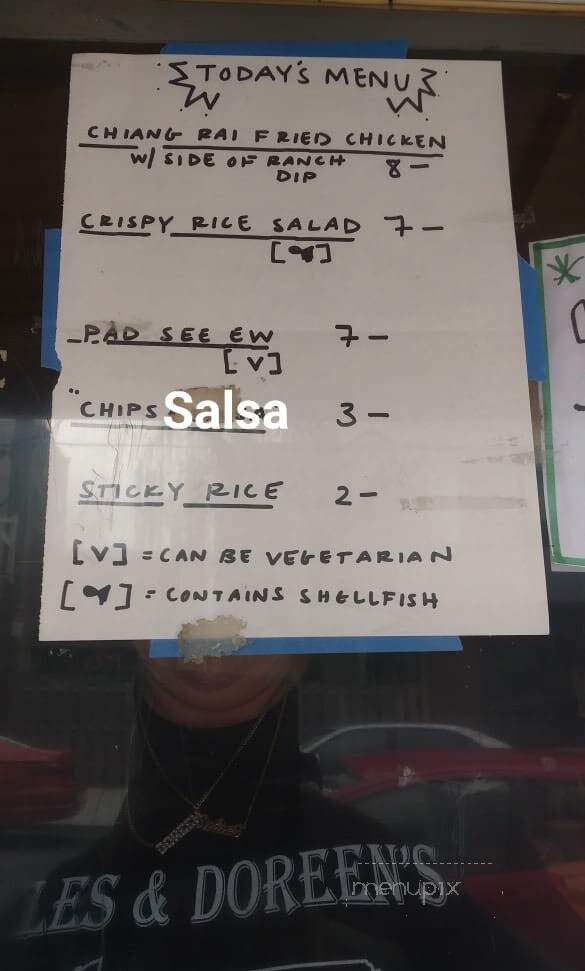 TODAY'S MENU
CHIANG RAI FRIED CHICKEN
W/ SIDE OF RANCH
DIP 8-
CRISPY RICE SALAD 7-
PAD SEE EW 7-
[V]
CHIPS Salsa 3-
STICKY RICE 2-
[V] = CAN BE VEGETARIAN
= CONTAINS SHELLFISH
LES & DOREEN'S
menupix